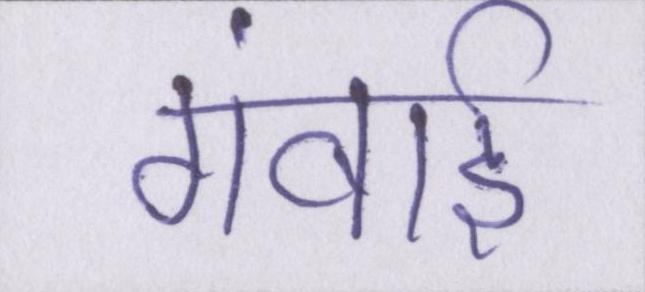 गंवाई